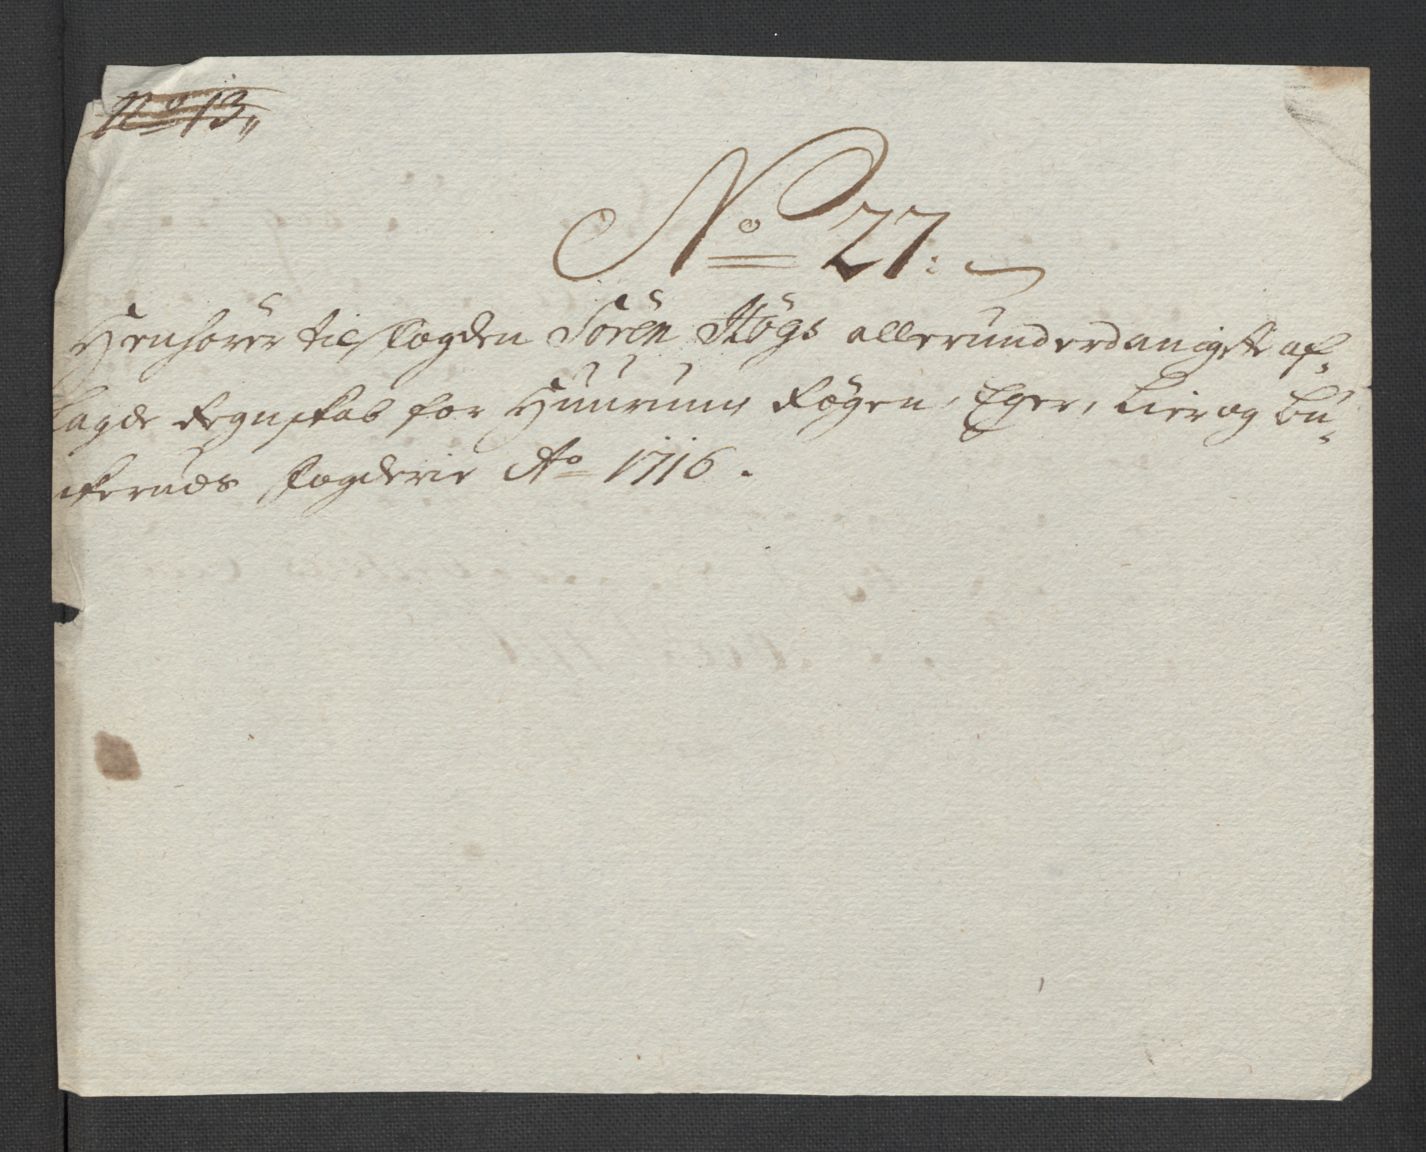 No 13„
No 27:
Henhører til Fogden Søren Høgs allerunderdanigste af-
lagde Regnskab for Huurums Røgen, Eger, Lier og Bu-
skeruds Fogderie Ao 1716.